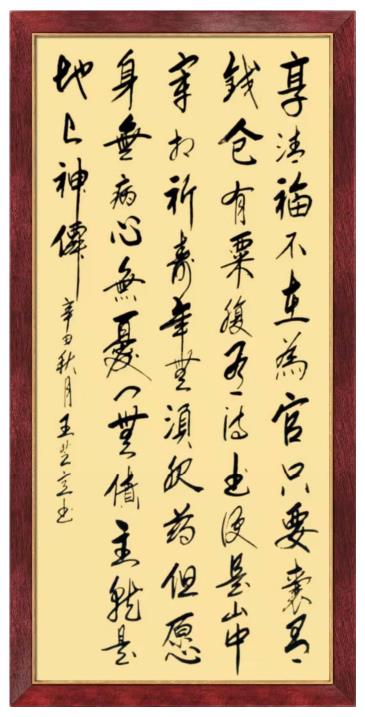 享清福不在為官只要囊有
錢仓有粟腹有诗书便是山中
宰相祈寿年無須服药但愿
身無病心無憂门無債主就是
地上神僊
辛丑秋月王芝书